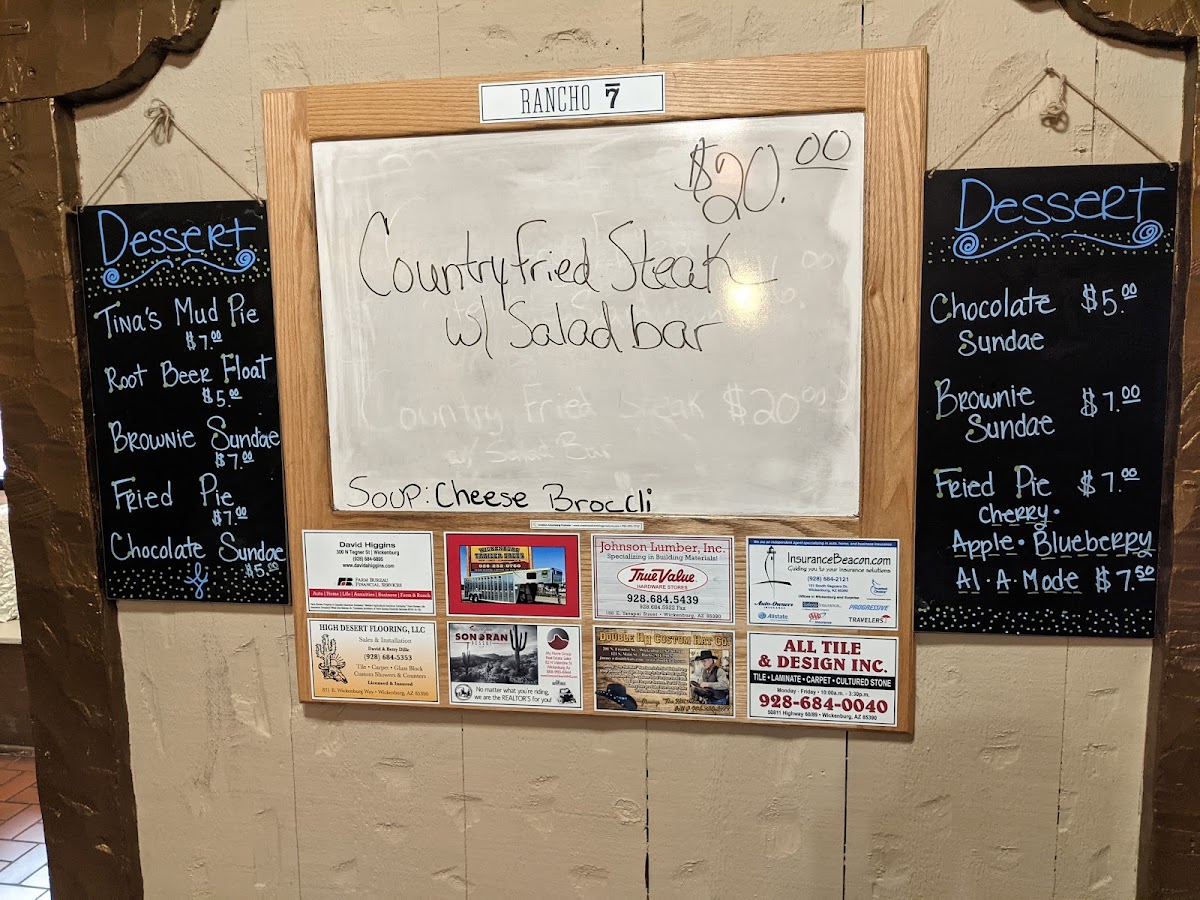 Dessert
Tina's Mud Pie
$7.00
Root Beer Float
$5.00
Brownie Sundae
$7.00
Fried Pie
$7.00
Chocolate Sundae
$5.00
RANCHO 7
$20.00
Country Fried Steak
w/ Salad bar
Country Fried Steak $20.00
w/ Salad Bar
Soup: Cheese Broccli
David Higgins
300 N Tegner St | Wickenburg
(928) 684-5895
www.davidahiggins.com
FARM BUREAU
FINANCIAL SERVICES
Auto | Home | Life | Annuities | Business | Farm & Ranch
WICKENBURG
TRAILER SALES
Johnson Lumber, Inc.
Specializing in Building Materials!
True Value
HARDWARE STORES
928.684.5439
928.684.5922 Fax
InsuranceBeacon.com
Guiding you to your insurance solutions
(928) 684-2121
Wickenburg, AZ 85390
Auto-Owners
PROGRESSIVE
Allstate
TRAVELERS
HIGH DESERT FLOORING, LLC
Sales & Installation
David & Betty Dille
(928) 684-5353
Tile • Carpet • Glass Block
Custom Showers & Counters
Licensed & Insured
811 E. Wickenburg Way • Wickenburg, AZ 85390
SONORAN
No matter what you're riding,
we are the REALTOR'S for you!
DOUBLE HH CUSTOM HAT CO
ALL TILE
& DESIGN INC.
TILE • LAMINATE • CARPET • CULTURED STONE
Monday - Friday • 10:00a.m. - 3:30p.m.
928-684-0040
50811 Highway 60/89 • Wickenburg, AZ 85390
Dessert
Chocolate $5.00
Sundae
Brownie $7.00
Sundae
Fried Pie $7.00
Cherry •
Apple • Blueberry
Al A Mode $7.50